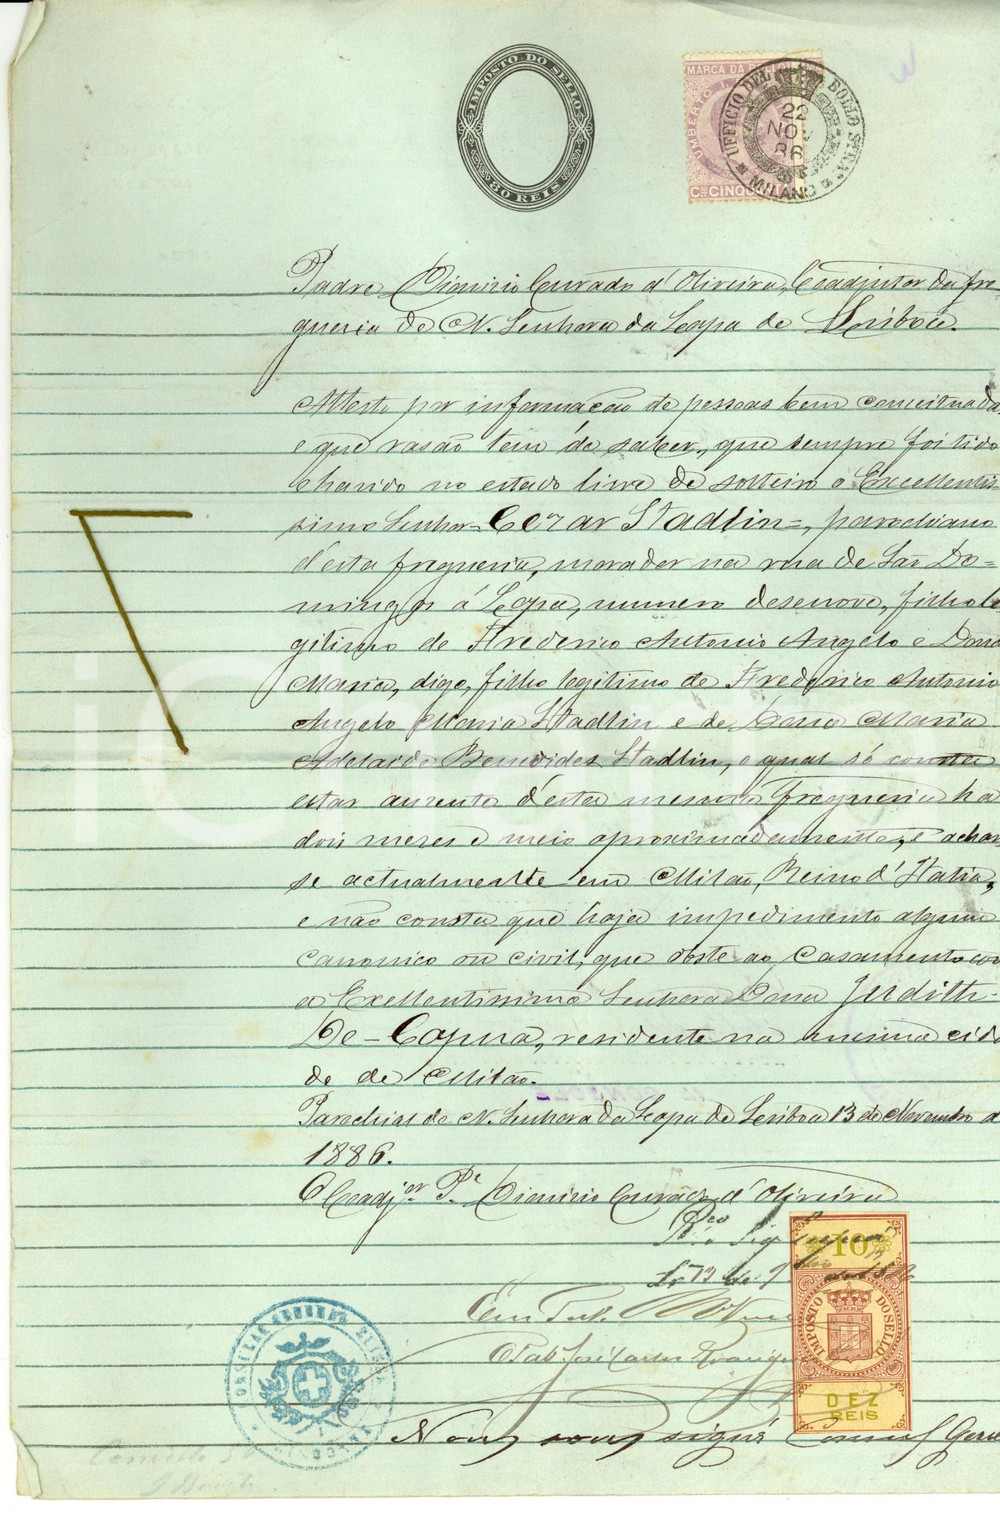 IMPOSTO DO SELLO
80 REIS
MARCA DA BOLLO
UMBERTO I
UFFICIO DEL BOLLO STRAO
22
NOV
86
MILANO
Padre Dionizio Curado d'Oliveira, Coadjutor da fre
guesia de N. Senhora da Lapa de Lisboa.
Attesto por informação de pessoas bem conceituadas
e que rasão tem de saber, que sempre foi tido
havido no estado livre de solteiro o Excellentis
simo Senhor Cezar Stadlin=, parochiano
d'esta freguesia, morador na rua de São Do=
mingos á Lapa, numero desenove, filho le
gitimo de Frederico Antonio Angelo e Dona
Maria, digo, filho legitimo de Frederico Antonio
Angelo Maria Stadlin e de Dona Maria
Adelaide Benevides Stadlin, o qual só consta
estar auzente d'esta mesma freguesia ha
dois mezes e meio aproximadamente, e achar
se actualmente em Milão, Reino d'Italia,
e não consta que haja impedimento algum
canonico ou civil, que obste ao casamento com
a Exellentissima Senhora Dona Judith-
De-Capua, residente na mesma cida
de de Milão.
Parochial de N. Senhora da Lapa de Lisboa 13 de Novembro de
1886.
O Coadjor Pe Dionizio Curado d'Oliveira
10
IMPOSTO DO SELLO
DEZ
REIS
Em Test.
O Tab José Carlos
Nous sous signé Consul Gene